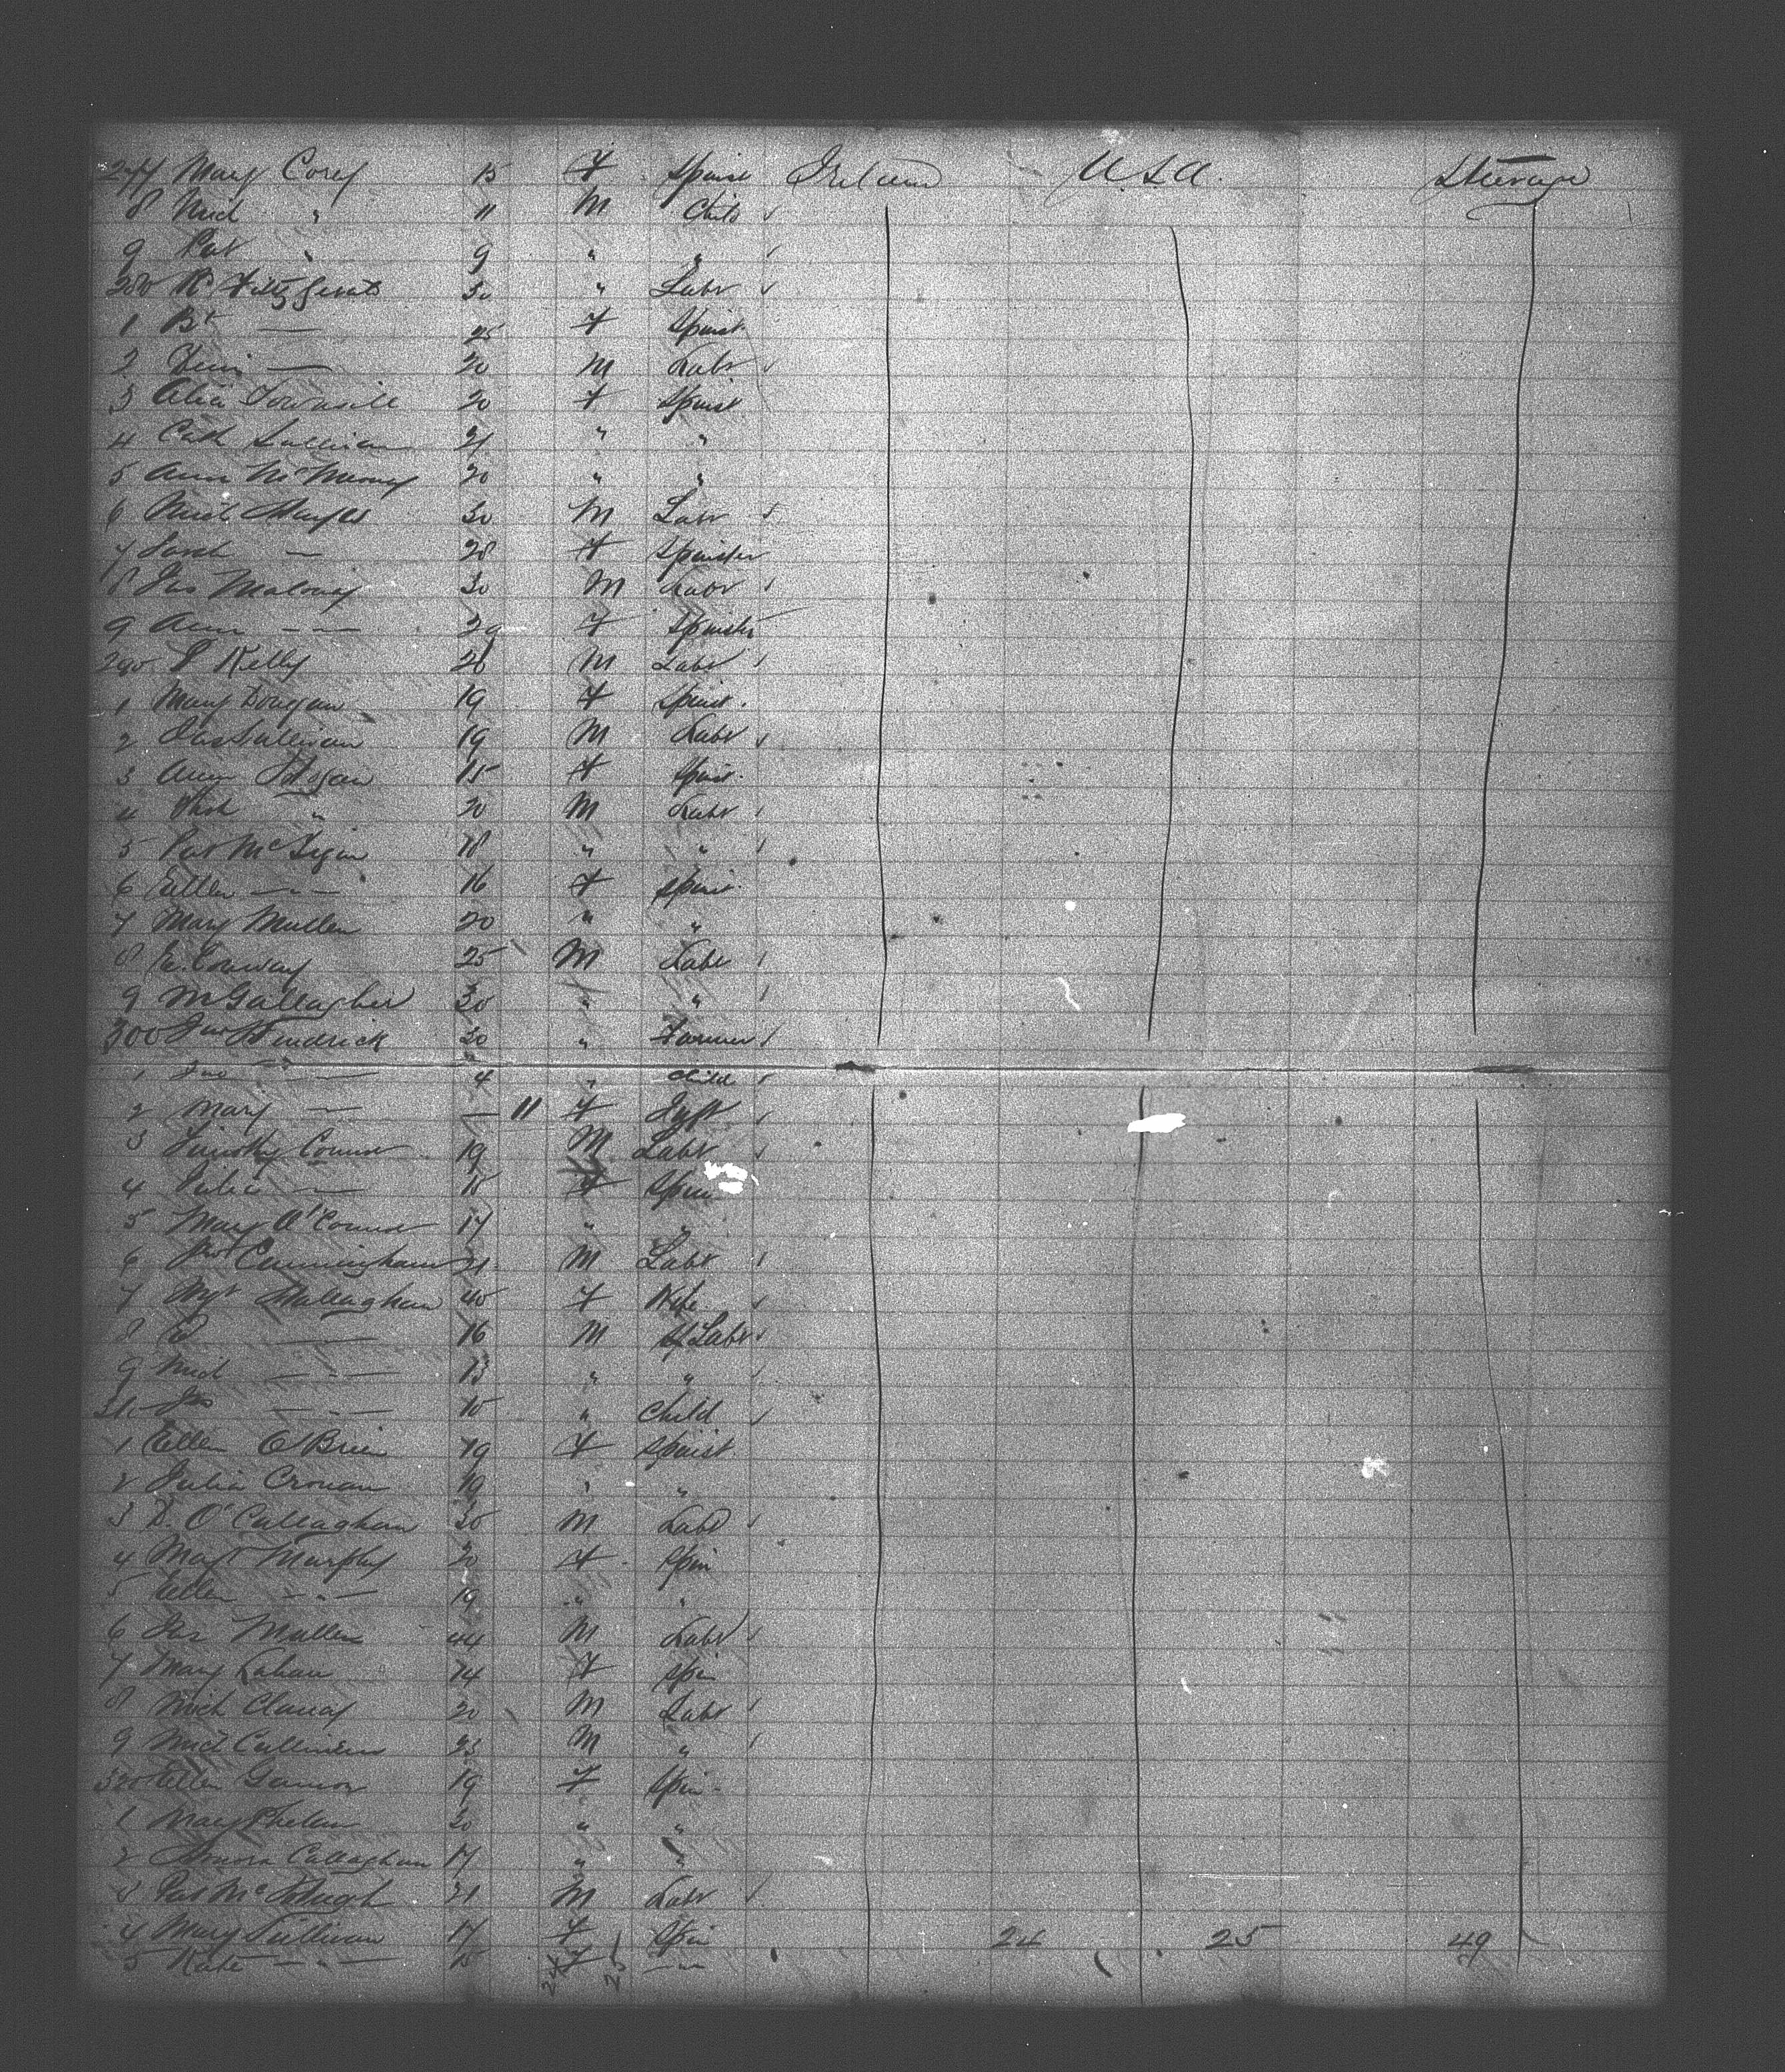 277 Mary Corey 15 F Spinst Ireland U.S.A. Steerage
8 Mich " 11 M Child
9 Pat " 9 " "
280 R. Fitzgerald 30 " Labr
1 Bt — 25 F Spinst
2 — 20 M Labr
3 Alice 20 F Spinst
4 Cath Sullivan 21 " "
5 Ann 20 " "
6 Mich Hayes 30 M Labr
7 Sarah — 28 F Spinster
8 Jas Maloney 30 M Labr
9 Ann — F Spinster
290 P Kelly 26 M Labr
1 Mary Donegan 19 F Spinst.
2 Jas Sullivan 19 M Labr
3 Ann Hogan 15 F Spinst.
4 " 20 M Labr
5 Pat Mc 18 " "
6 Ellen — 16 F Spinst.
7 Mary Mullen 20 " "
8 E. Conway 25 M Labr
9 M Gallagher 30 " "
300 Jno Kendrick 30 " Farmer
1 Jno — 4 " Child
2 Mary — — 11 F Inft
3 Timothy Connor 19 M Labr
4 Julia — 18 F Spin
5 Mary O'Connor 17 " "
6 Cunningham 21 M Labr
7 Mgt Hallaghan 40 F Wife
8 — 16 M Labr
9 Mich — 13 " "
310 Jas — 10 " Child
1 Ellen O'Brien 19 F Spinst
2 Julia Cronan 19 " "
3 D. O'Callaghan 30 M Labr
4 Magt Murphy 20 F Spin
5 Ellen — 19 " "
6 Jas Mullen 44 M Labr
7 Mary Lahan F Spin
8 Mich Clancy 20 M Labr
9 Mich Cullinan 23 M "
320 Ellen Gannon 19 F Spin.
1 Mary Phelan 20 " "
2 Honora Callaghan 17 " "
3 Pat McHugh 21 M Labr
4 Mary Sullivan 17 F Spin 24 25 49
5 Kate — 15 F —
24 25